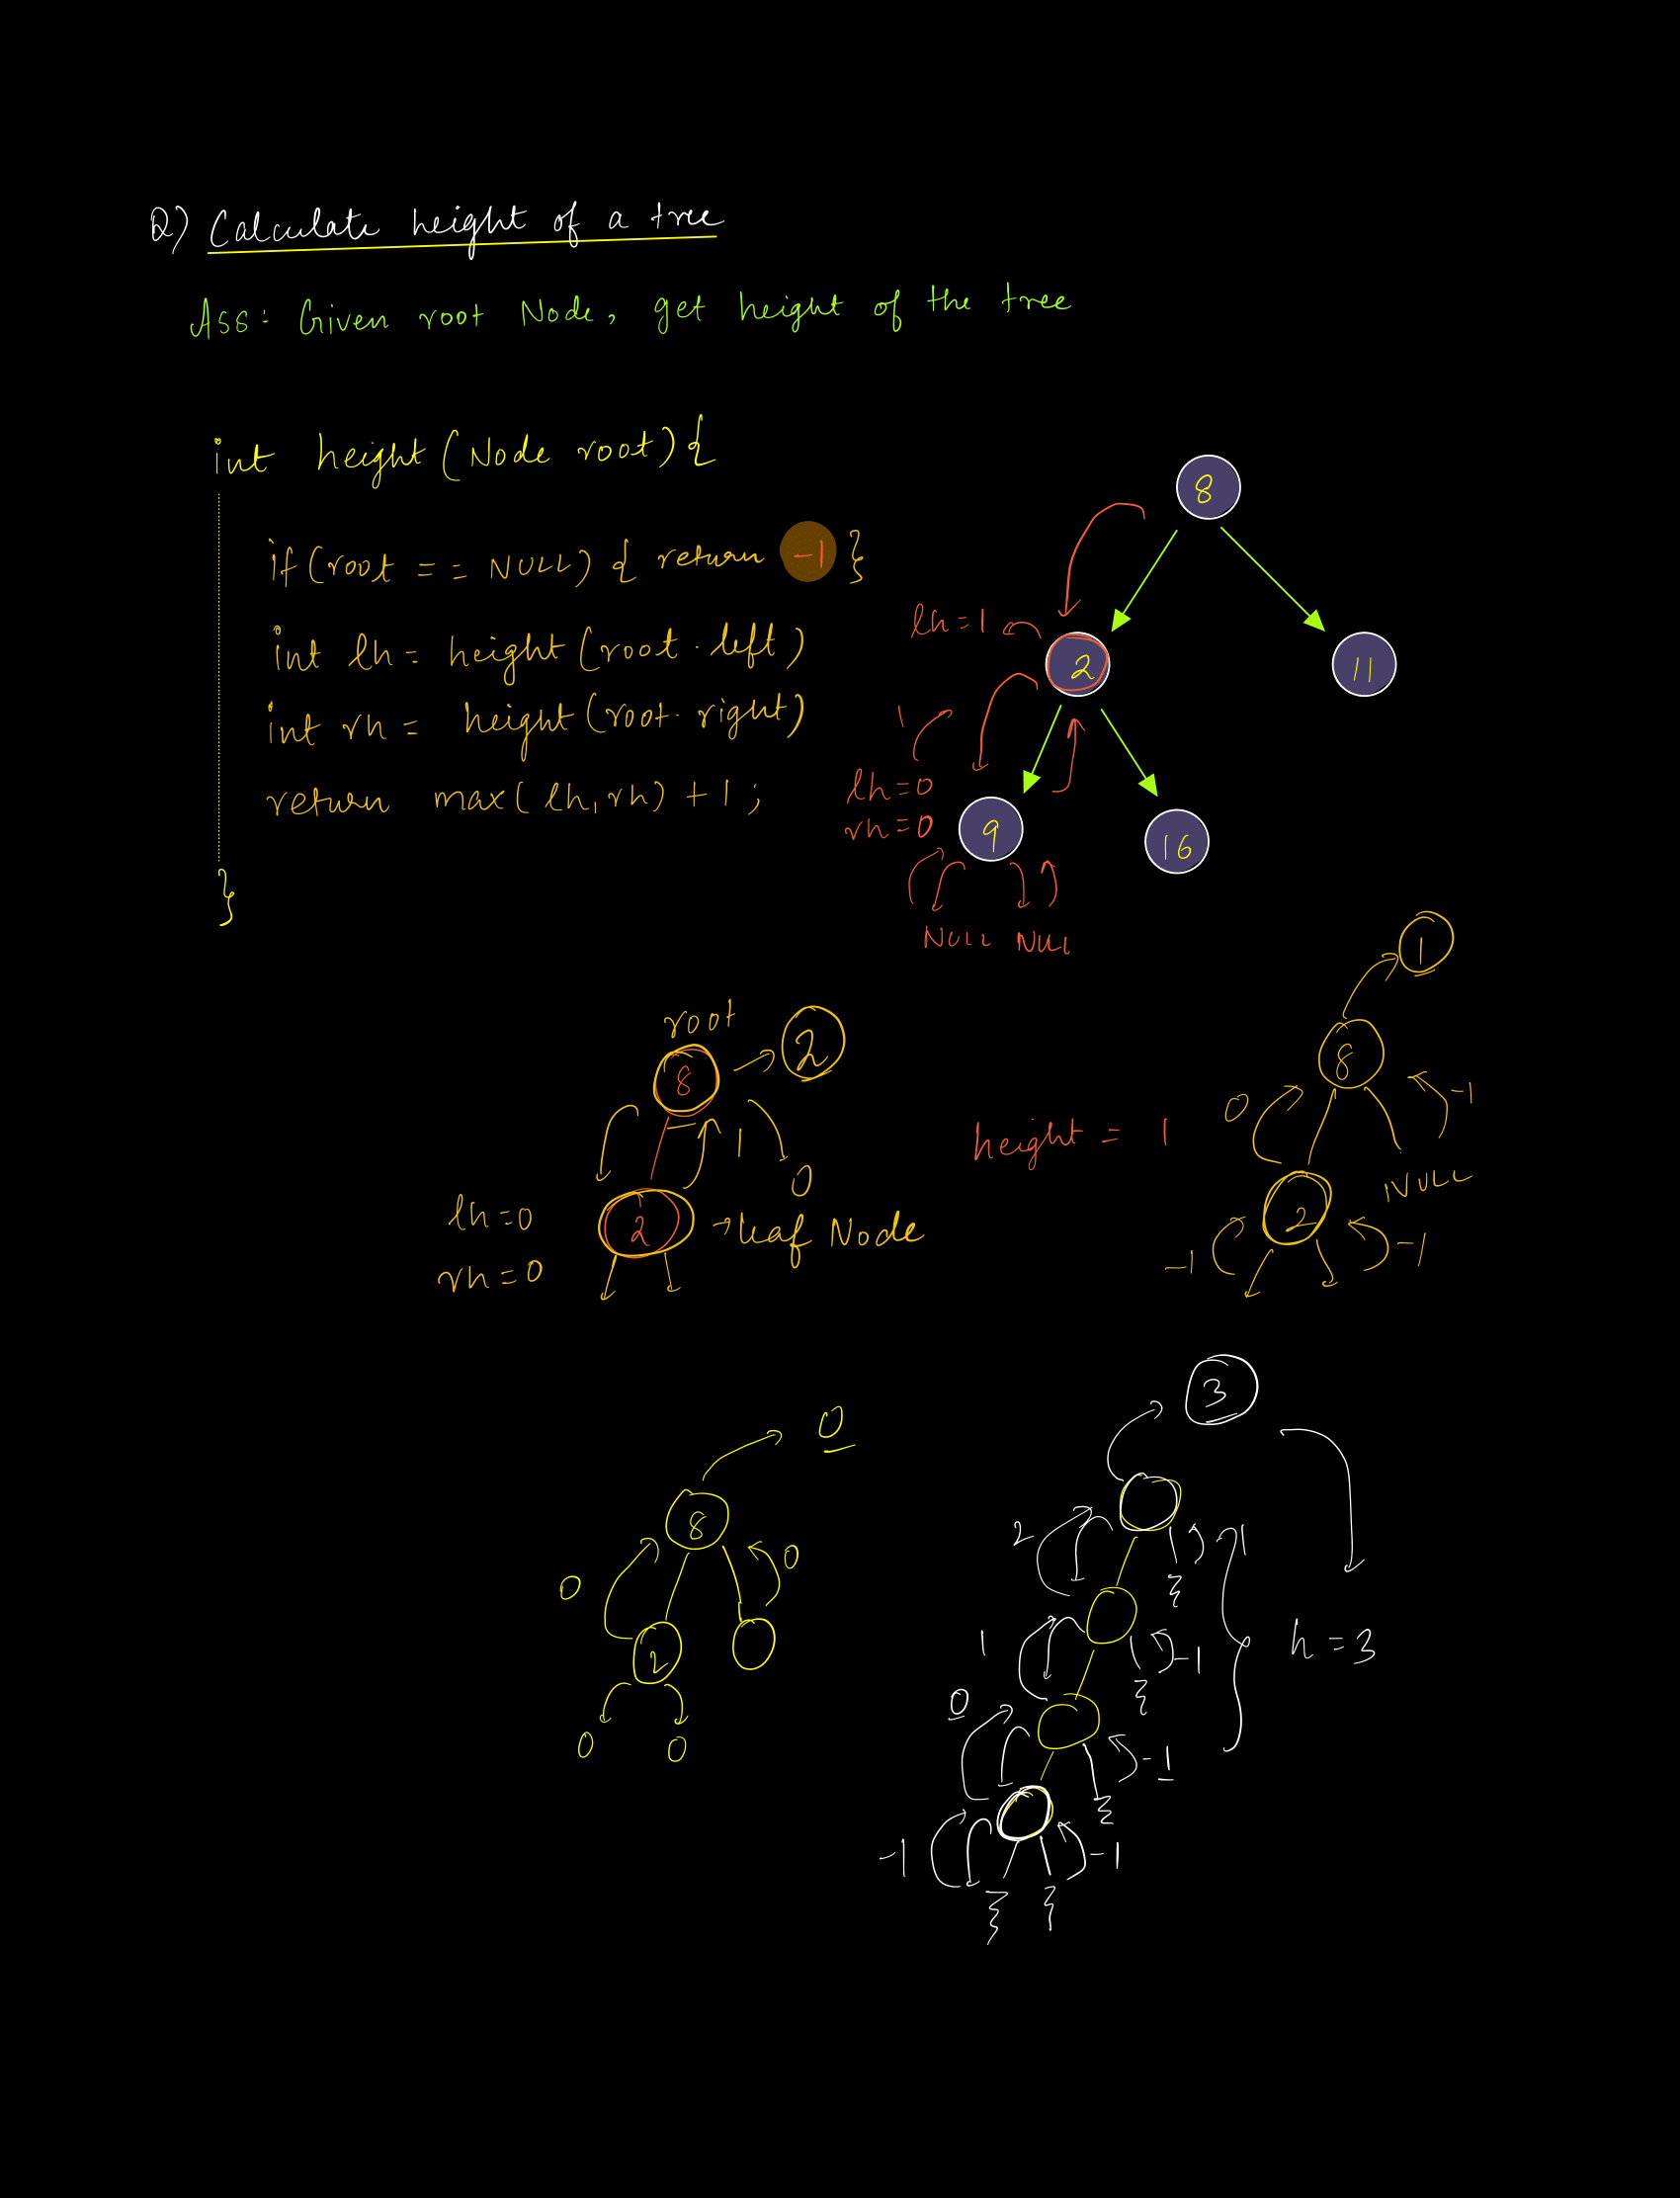 Q) Calculate height of a tree
Ass: Given root Node, get height of the tree
int height (Node root) {
if (root == NULL) { return -1 }
int lh = height (root.left)
int rh = height (root.right)
return max( lh, rh) + 1 ;
}
8
lh = 1
2
11
1
lh = 0
rh = 0
9
16
NULL NULL
root
8
2
1
0
lh = 0
rh = 0
2
→ leaf Node
height = 1
1
8
0
-1
NULL
2
-1
-1
0
8
0
0
2
0
0
3
2
-1
1
-1
h = 3
0
-1
-1
-1